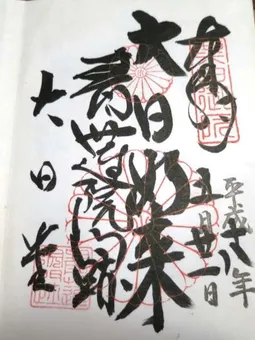 奉拝
平成廿八年
五月廿一日
大日如来
青蓮院門跡
大日堂